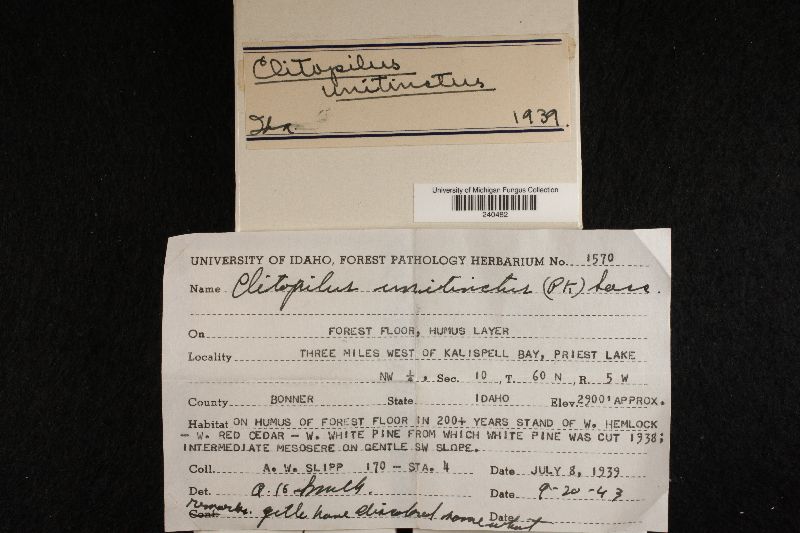 Clitopilus
unitinctus
Ida. 1939.
University of Michigan Fungus Collection
240482
UNIVERSITY OF IDAHO, FOREST PATHOLOGY HERBARIUM No. 1570
Name Clitopilus unitinctus (PK) Sacc.
On FOREST FLOOR, HUMUS LAYER
Locality THREE MILES WEST OF KALISPELL BAY, PRIEST LAKE
NW ¼, Sec. 10, T. 60 N, R. 5 W
County BONNER State IDAHO Elev. 2900' APPROX.
Habitat ON HUMUS OF FOREST FLOOR IN 200+ YEARS STAND OF W. HEMLOCK
- W. RED CEDAR - W. WHITE PINE FROM WHICH WHITE PINE WAS CUT 1938;
INTERMEDIATE MESOSERE ON GENTLE SW SLOPE.
Coll. A. W. SLIPP 170 - STA. 4 Date JULY 8, 1939
Det. A H Smith. Date 9-20-43
Cont. Date
remarks. gills have discolored somewhat